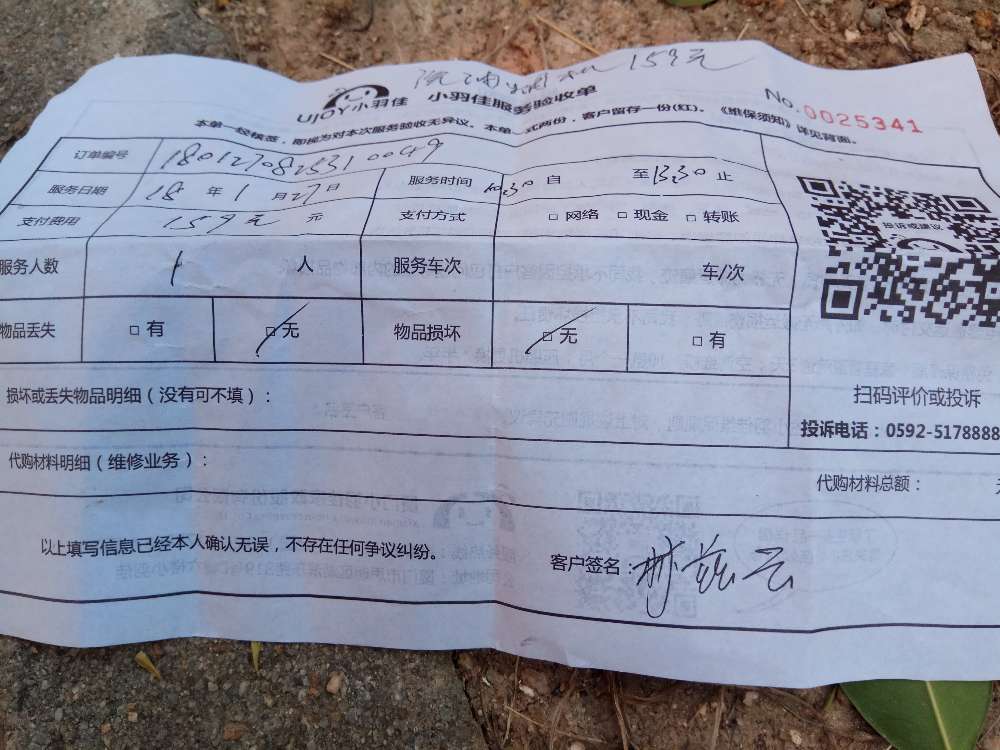 159元
UJOY小羽佳 小羽佳服务验收单
No.0025341
本单一经核签,即视为对本次服务验收无异议。本单一式两份,客户留存一份(红)。《维保须知》详见背面。
订单编号
服务日期 18 年 1 月 27 日 服务时间 10:30 自 至 13:30 止
支付费用 159元 元 支付方式 □ 网络 □ 现金 □ 转账
服务人数 1 人 服务车次 车/次
物品丢失 □ 有 □ 无 物品损坏 □ 无 □ 有
损坏或丢失物品明细(没有可不填):
代购材料明细(维修业务):
代购材料总额:
以上填写信息已经本人确认无误,不存在任何争议纠纷。
客户签名:
投诉或建议
扫码评价或投诉
投诉电话:0592-5178888